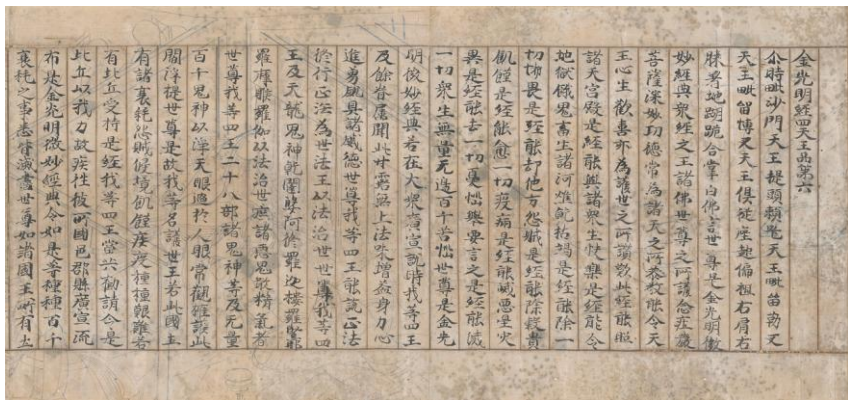 金光明經四天王品第六
尒時毗沙門天王提頭頼吒天王毗留勒叉
天王毗留博叉天王俱從座起偏袒右肩右
膝著地胡跪合掌白佛言世尊是金光明微
妙經典衆經之王諸佛世尊之所護念莊嚴
菩薩深妙功德常為諸天之所恭敬能令天
王心生歡喜亦為護世之所讃歎此經能照
諸天宮殿是經能與諸衆生快樂是經能令
地獄餓鬼畜生諸河燋乾枯竭是經能除一
切怖畏是經能却他方怨賊是經能除穀貴
飢饉是經能愈一切疫病是經能滅惡星變
異是經能除一切憂惱舉要言之是經能滅
一切衆生無量无邊百千苦惱世尊是金光
明微妙經典若在大衆廣宣說時我等四王
及餘眷屬聞此甘露無上法味增益身力心
進勇銳具諸威德世尊我等四王能說正法
修行正法為世法王以法治世世尊我等四
王及天龍鬼神乹闥婆阿修羅迦樓羅緊那
羅摩睺羅伽以法治世遮諸惡鬼噉精氣者
世尊我等四王二十八部諸鬼神等及无量
百千鬼神以淨天眼過於人眼常觀擁護此
閻浮提世尊是故我等名護世王若此國土
有諸衰耗怨賊侵境飢饉疾疫種種艱難若
有比丘受持是經我等四王當共勸請令是
比丘以我力故疾往彼所國邑郡縣廣宣流
布是金光明微妙經典令如是等種種百千
衰耗之事悉皆滅盡世尊如諸國王所有土